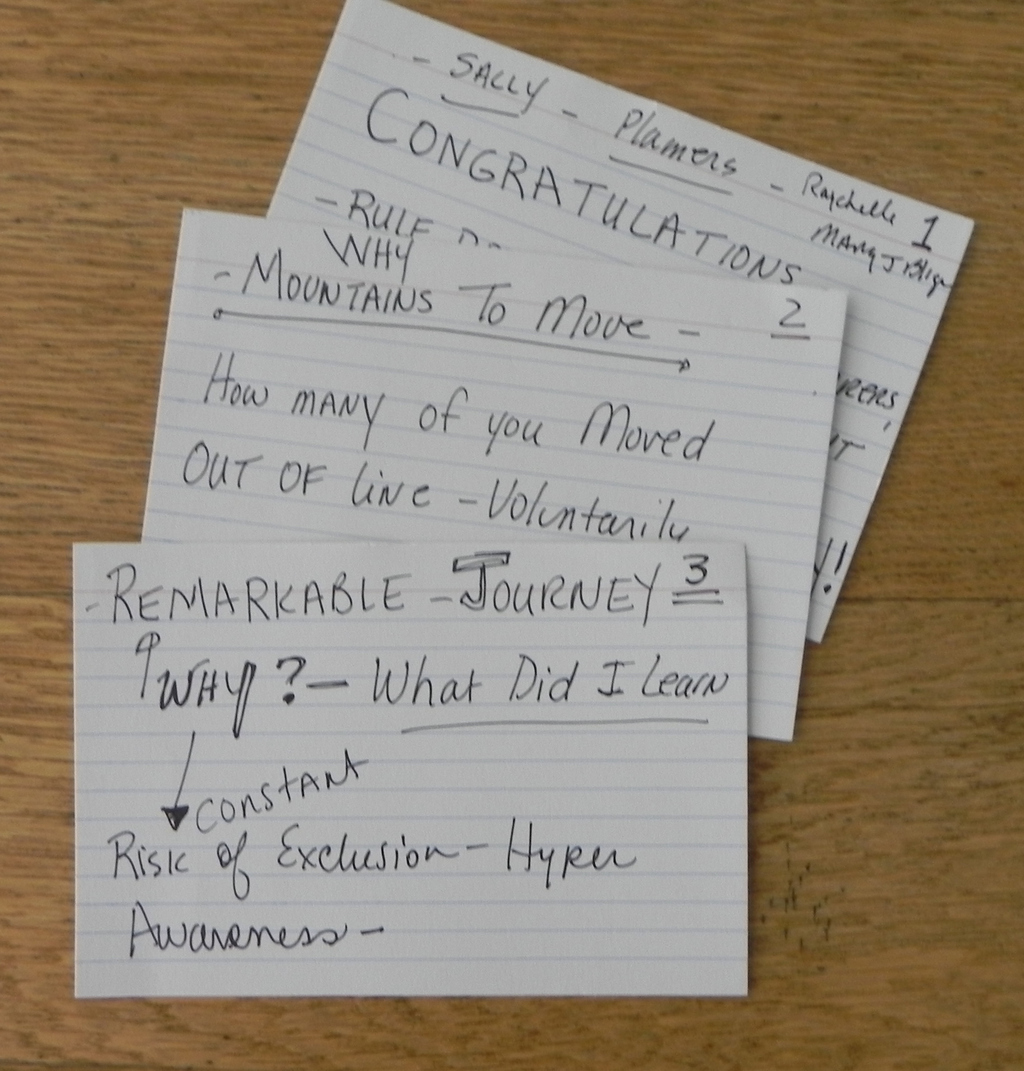 - SALLY - Plamers - Raychelle 1
CONGRATULATIONS
- RULE
!!
WHY
- MOUNTAINS To Move - 2
How MANY of you Moved
OUT OF line - Voluntarily
- REMARKABLE - JOURNEY 3
WHY? - What Did I Learn
CONSTANT
Risk of Exclusion - Hyper
Awareness -